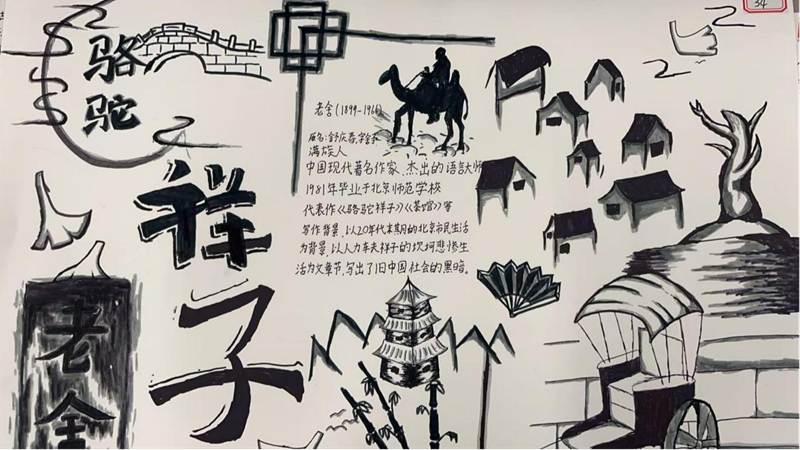 34
骆驼
祥子
老舍
老舍(1899-1966)
原名:舒庆春,字舍予
满族人
中国现代著名作家、杰出的语言大师
1981年毕业于北京师范学校
代表作《骆驼祥子》《茶馆》等
写作背景,以20年代末期的北京市民生活
为背景,以人力车夫祥子的坎坷悲惨生
活为文章节,写出了旧中国社会的黑暗。